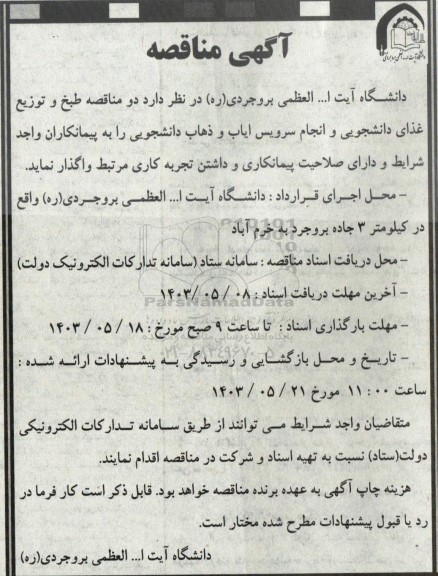 آگهی مناقصه
دانشگاه آیت ا... العظمی بروجردی(ره) در نظر دارد دو مناقصه طبخ و توزیع
غذای دانشجویی و انجام سرویس ایاب و ذهاب دانشجویی را به پیمانکاران واجد
شرایط و دارای صلاحیت پیمانکاری و داشتن تجربه کاری مرتبط واگذار نماید.
- محل اجرای قرارداد : دانشگاه آیت ا... العظمی بروجردی(ره) واقع
در کیلومتر ۳ جاده بروجرد به خرم آباد
- محل دریافت اسناد مناقصه : سامانه ستاد (سامانه تدارکات الکترونیک دولت)
- آخرین مهلت دریافت اسناد : ۰۸ / ۰۵ /۱۴۰۳
ParsNamadData
- مهلت بارگذاری اسناد : تا ساعت ۹ صبح مورخ : ۱۸ / ۰۵ / ۱۴۰۳
- تاریخ و محل بازگشایی و رسیدگی به پیشنهادات ارائه شده :
ساعت ۰۰ : ۱۱ مورخ ۲۱ / ۰۵ / ۱۴۰۳
متقاضیان واجد شرایط می توانند از طریق سامانه تدارکات الکترونیکی
دولت(ستاد) نسبت به تهیه اسناد و شرکت در مناقصه اقدام نمایند.
هزینه چاپ آگهی به عهده برنده مناقصه خواهد بود. قابل ذکر است کار فرما در
رد یا قبول پیشنهادات مطرح شده مختار است.
دانشگاه آیت ا... العظمی بروجردی(ره)